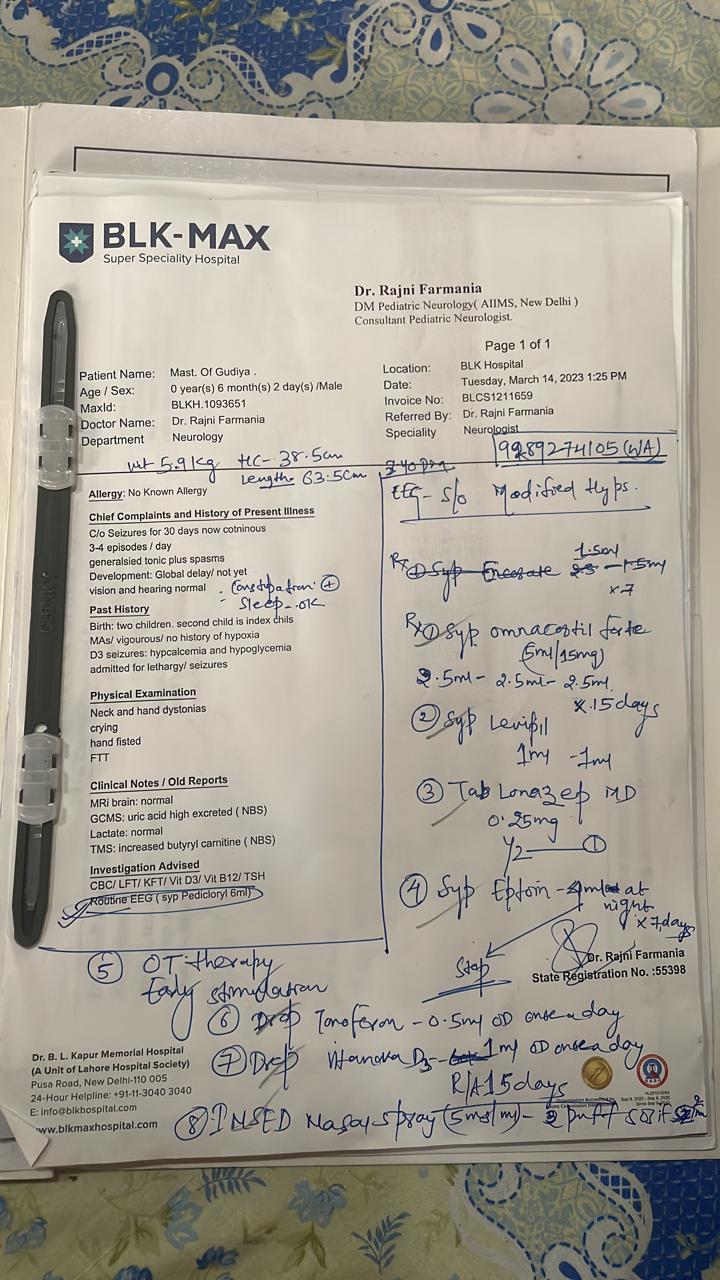 BLK-MAX
Super Speciality Hospital
Dr. Rajni Farmania
DM Pediatric Neurology( AIIMS, New Delhi )
Consultant Pediatric Neurologist.
Page 1 of 1
Patient Name: Mast. Of Gudiya .
Age / Sex: 0 year(s) 6 month(s) 2 day(s) /Male
MaxId: BLKH.1093651
Doctor Name: Dr. Rajni Farmania
Department Neurology
Location: BLK Hospital
Date: Tuesday, March 14, 2023 1:25 PM
Invoice No: BLCS1211659
Referred By: Dr. Rajni Farmania
Speciality Neurologist
9289274105 (WA)
wt 5.9 kg HC- 38.5cm
Length- 63.5cm
Allergy: No Known Allergy
Chief Complaints and History of Present Illness
C/o Seizures for 30 days now cotninous
3-4 episodes / day
generalsied tonic plus spasms
Development: Global delay/ not yet
vision and hearing normal
: Constipation +
: Sleep - ok
Past History
Birth: two children. second child is index chils
MAs/ vigourous/ no history of hypoxia
D3 seizures: hypcalcemia and hypoglycemia
admitted for lethargy/ seizures
Physical Examination
Neck and hand dystonias
crying
hand fisted
FTT
Clinical Notes / Old Reports
MRi brain: normal
GCMS: uric acid high excreted ( NBS)
Lactate: normal
TMS: increased butyryl carnitine ( NBS)
Investigation Advised
CBC/ LFT/ KFT/ Vit D3/ Vit B12/ TSH
Routine EEG ( syp Pedicloryl 6ml)
EEG- s/o Modified Hyps.
Rx ① Syp Encorate 1.5ml - 1.5ml
x 7
Rx ① Syp omnacortil forte
(5ml/15mg)
2.5ml- 2.5ml- 2.5ml
x 15 days
② Syp Levipil
1ml - 1ml
③ Tab Lonazep MD
0.25mg
1/2 — ①
④ Syp Eptoin - at
night
x 7 days
Stop
Dr. Rajni Farmania
State Registration No. :55398
⑤ OT therapy
Early stimulation
⑥ Drop Tonoferon - 0.5ml OD once a day
⑦ Drop D3- 1ml OD once a day
R/A 15 days
⑧ Nasal spray (5mg/ml) - 2 puff
Dr. B. L. Kapur Memorial Hospital
(A Unit of Lahore Hospital Society)
Pusa Road, New Delhi-110 005
24-Hour Helpline: +91-11-3040 3040
E: info@blkhospital.com
www.blkmaxhospital.com